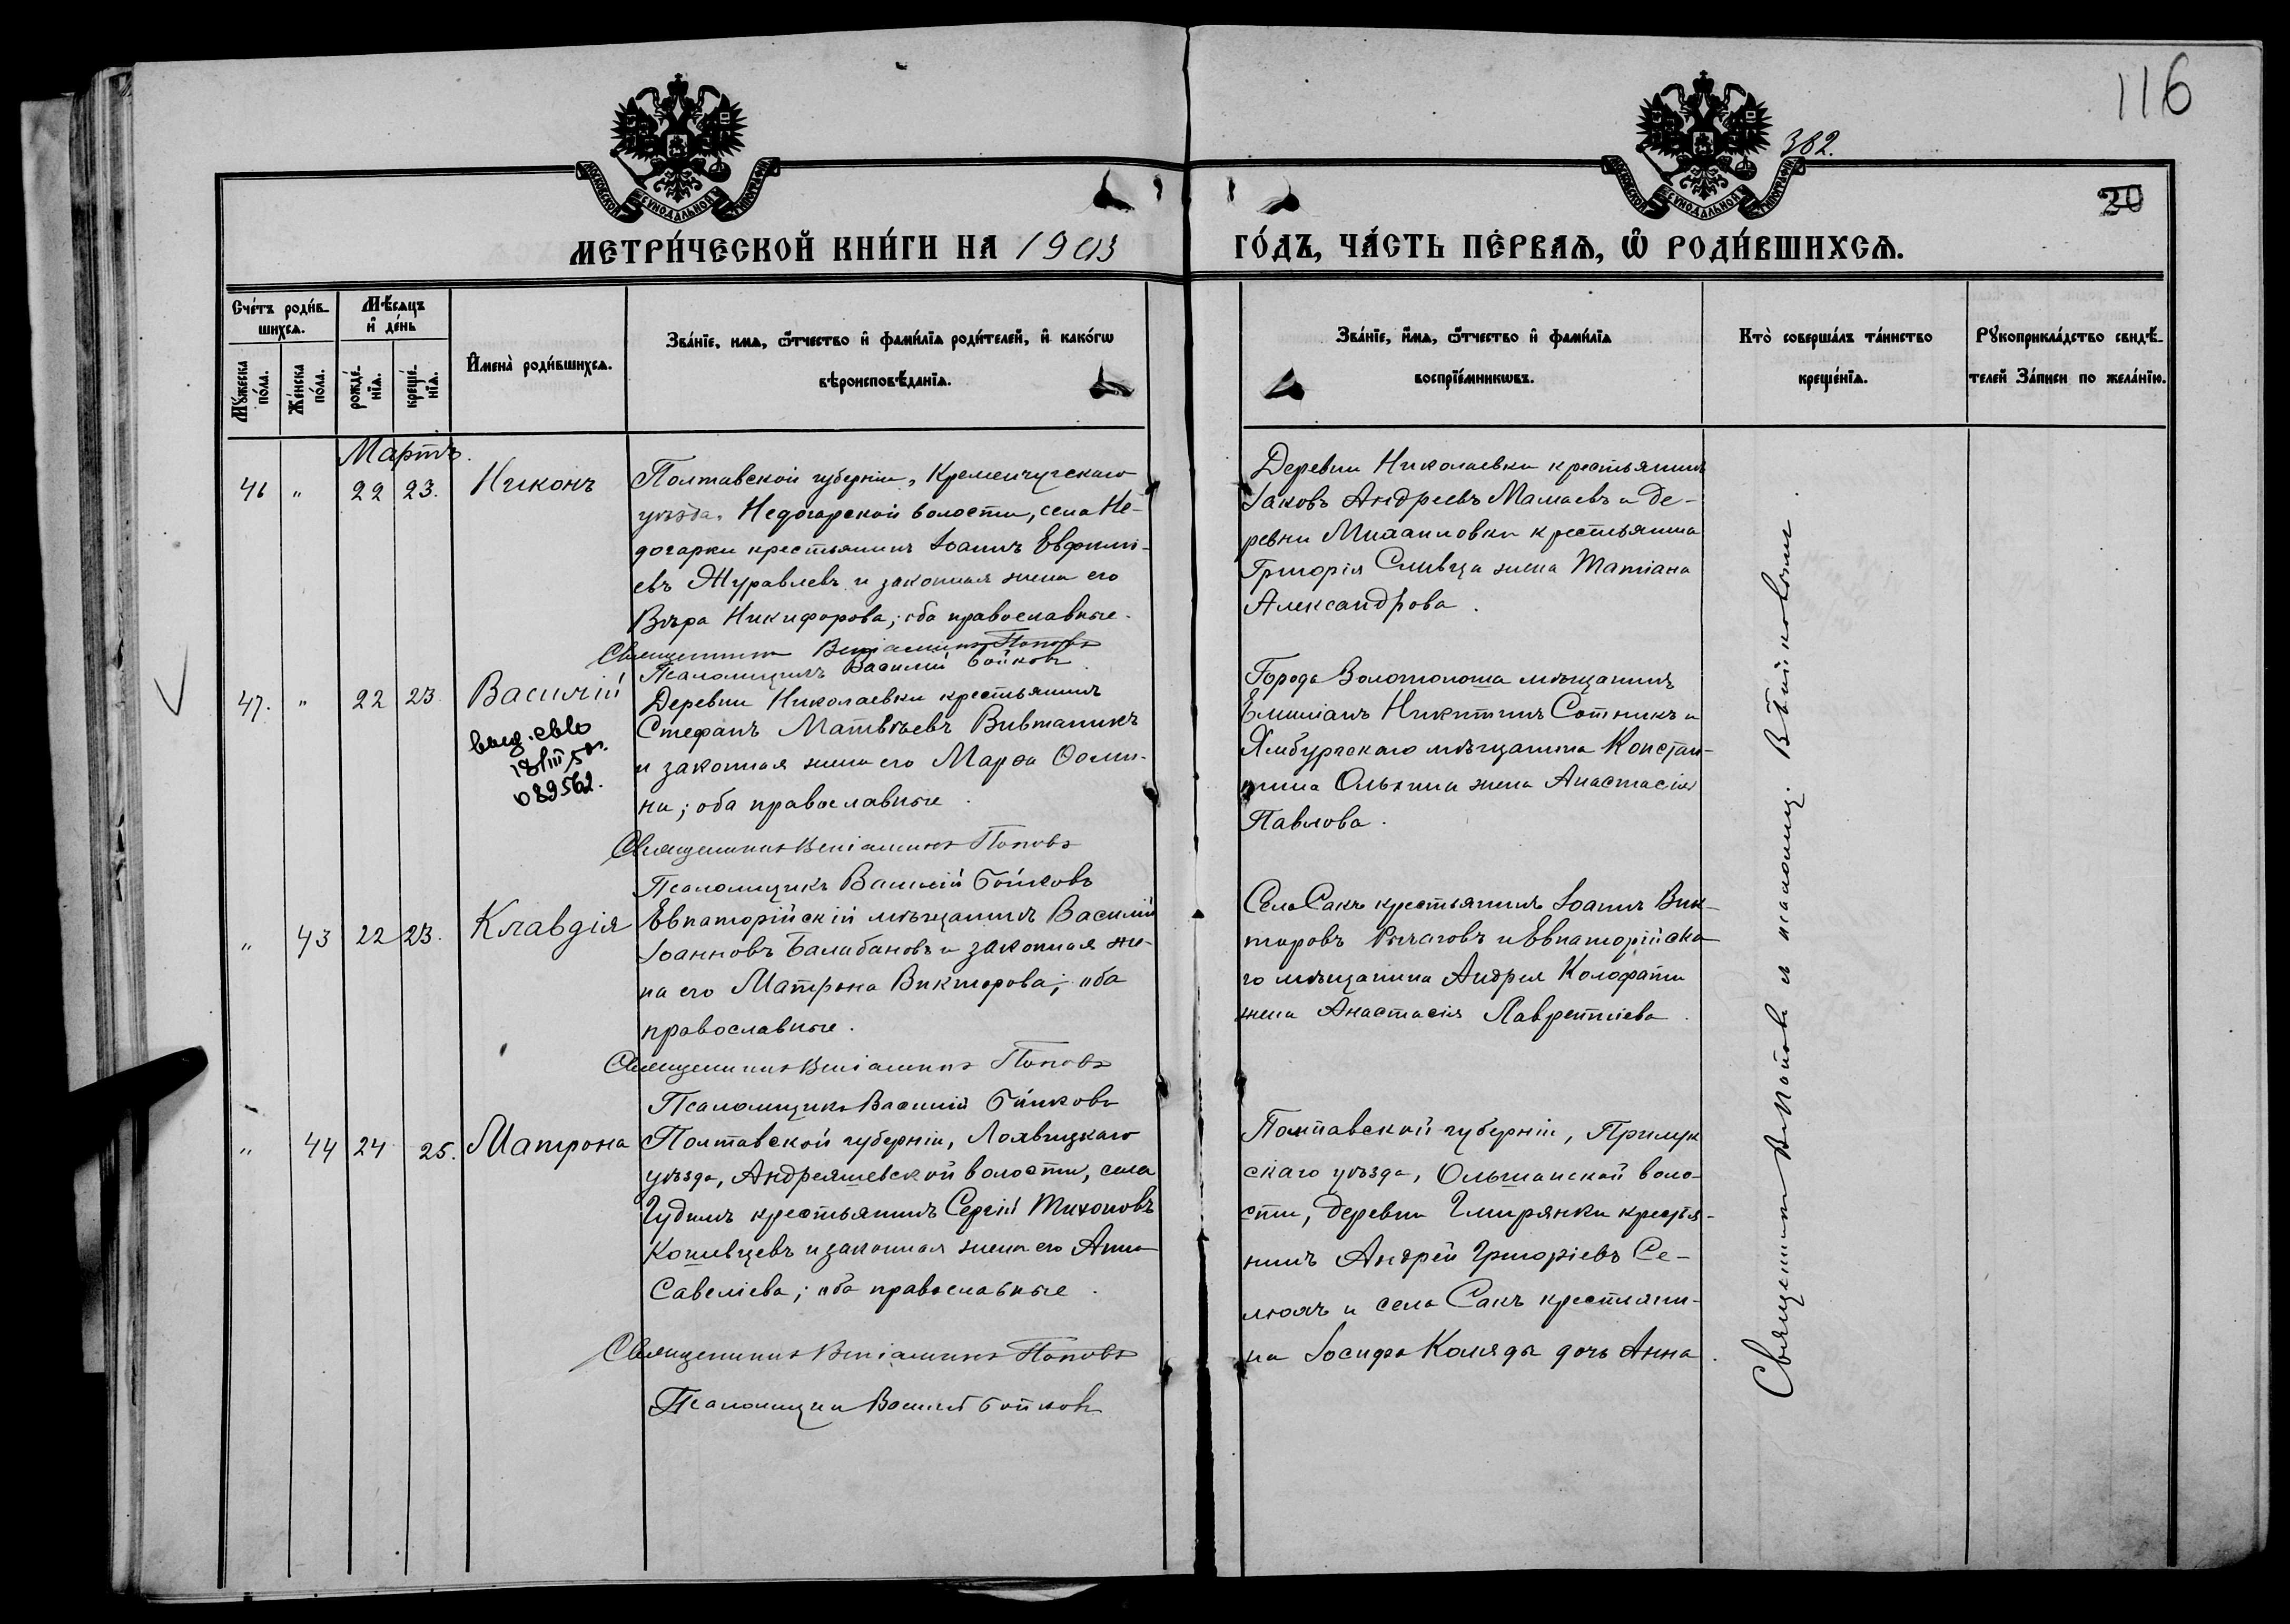 116
382.
20
МОСКОВСКОЙ СУНОДАЛЬНОЙ ТИПОГРАФІИ
МОСКОВСКОЙ СУНОДАЛЬНОЙ ТИПОГРАФІИ
МЕТРИ́ЧЕСКОЙ КНИ́ГИ НА 1903
ГО́ДЪ, ЧА́СТЬ ПЕ́РВАѦ, Ѡ РОДИ́ВШИХСѦ.
Сче́тъ роди́в-
шихсѧ.
Мꙋ́жеска
по́ла.
Же́нска
по́ла.
Мѣ́сѧцъ
и҆ де́нь
рожде́-
нїѧ.
креще́-
нїѧ.
И҆мена̀ роди́вшихсѧ.
Зва́нїе, имѧ, ѻ҆́тчество и҆ фами́лїѧ роди́телей, и҆ како́гѡ
вѣроисповѣ́данїѧ.
Зва́нїе, и҆́мѧ, ѻ҆́тчество и҆ фами́лїѧ
воспрїе́мникѡвъ.
Кто̀ соверша́лъ та́инство
креще́нїѧ.
Рꙋкоприкла́дство свидѣ́-
телей За́писи по жела́нїю.
Мартъ.
46 " 22 23. Никонъ
Полтавской губерніи, Кременчугскаго
уѣзда, Недогарской волости, села Не-
догарки крестьянинъ Іоаннъ Евфимі-
евъ Журавлевъ и законная жена его
Вѣра Никифорова; оба православные.
Священникъ Веніаминъ Поповъ
Псаломщикъ Василій Бойковъ
Деревни Николаевки крестьянинъ
Іаковъ Андреевъ Мамаевъ и де-
ревни Михаиловки крестьянина
Григорія Сливца жена Татіана
Александрова.
47. " 22 23 Василій
выд. св-во
18/III 50 г.
089562.
Деревни Николаевки крестьянинъ
Стефанъ Матвѣевъ Вивтаникъ
и законная жена его Марѳа Ѳоми-
на; оба православные.
Священникъ Веніаминъ Поповъ
Псаломщикъ Василій Бойковъ
Города Золотоноша мѣщанинъ
Емиліанъ Никитинъ Сотникъ и
Ямбургскаго мѣщанина Констан-
тина Ольхина жена Анастасія
Павлова.
" 43 22 23. Клавдія
Евпаторійскій мѣщанинъ Василій
Іоанновъ Балабановъ и законная же-
на его Матрона Викторова; оба
православные.
Священникъ Веніаминъ Поповъ
Псаломщикъ Василій Бойковъ
Села Сакъ крестьянинъ Іоаннъ Вик-
торовъ Рычаговъ и Евпаторійска-
го мѣщанина Андрея Колофати
жена Анастасія Лаврентіева.
" 44 24 25. Матрона
Полтавской губерніи, Лохвицкаго
уѣзда, Андреяшевской волости, села
Гудимъ крестьянинъ Сергій Тихоновъ
Копивцевъ и законная жена его Анна
Савеліева; оба православные.
Священникъ Веніаминъ Поповъ
Псаломщикъ Василій Бойковъ
Полтавской губерніи, Прилук
скаго уѣзда, Ольшанской воло-
сти, деревни Гмирянки крестья-
нинъ Андрей Григоріевъ Се-
люхъ и села Сакъ крестьяни-
на Іосифа Коляды дочь Анна.
Священникъ В. Поповъ и псаломщ. В. Бойковъ